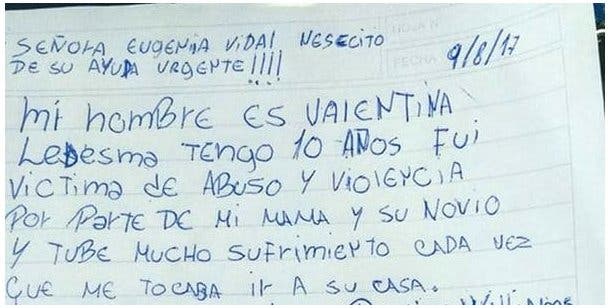 SEÑORA EUGENIA VIDAL NESECITO
DE SU AYUDA URGENTE!!!!
HOJA Nº
FECHA 9/8/17
Mi hombre ES VALENTINA
Ledesma TENGO 10 AÑOS FUI
VICTIMA de ABUSO Y VIOLENCIA
POR PARTE DE Mi MAMA Y SU NOVIO
Y TUBE MUCHO SUFRIMIENTO CADA VEZ
QUE ME TOCABA iR A SU CASA.